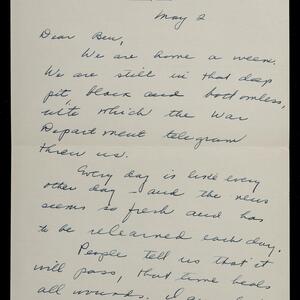 May 2
Dear Ben,
We are home a week.
We are still in that deep
pit, black and bottomless,
into which the War
Department telegram
threw us.
Every day is like every
other day - and the news
seems so fresh and has
to be relearned each day.
People tell us that it
will pass, that time heals
all wounds.